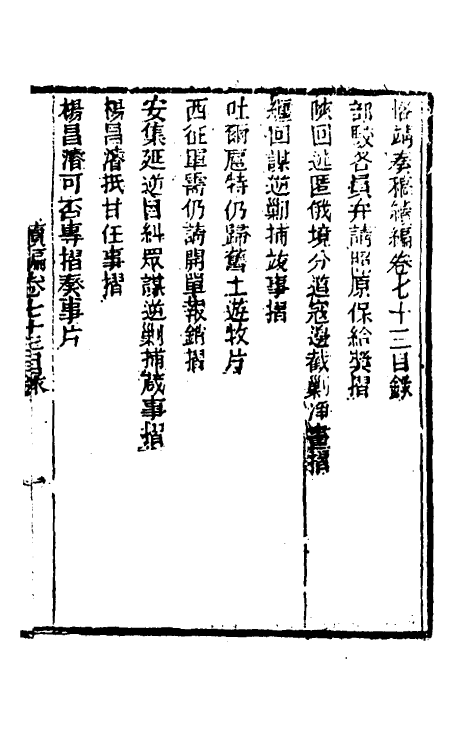 恪靖奏稿續編卷七十三目錄
部駁各員弁請照原保給獎摺
陝回逃匿俄境分道寇邊截剿淨盡摺
纏回謀逆剿捕竣事摺
吐爾扈特仍歸舊土遊牧片
西征軍需仍請開單報銷摺
安集延逆酋糾眾謀逆剿捕蕆事摺
楊昌濬抵甘任事摺
楊昌濬可否專摺奏事片
續編卷七十三目錄
一